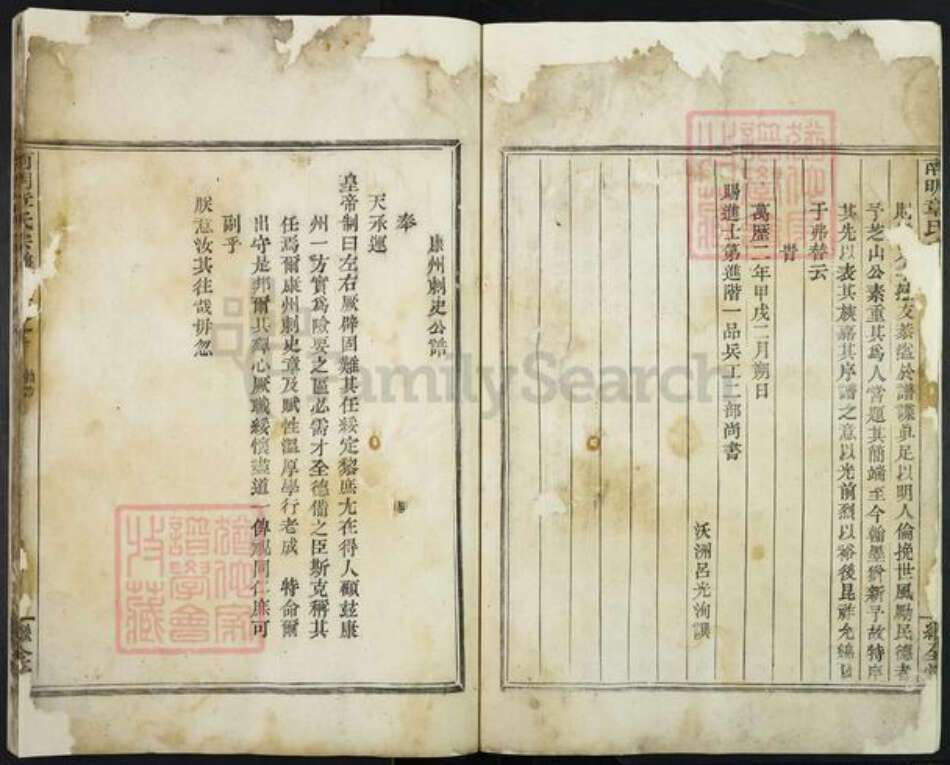 南明章氏
友恭溢於譜諜真足以明人倫挽世風勵民德者
予芝山公素重其為人嘗題其簡端至今翰墨猶新予故特序
其先以表其族嘉其序譜之意以光前烈以裕後昆
于弗替云
時
萬歷二年甲戌二月朔日
賜進士第進階一品兵工二部尚書
沃洲呂光洵譔
康州刺史公誥
奉
天承運
皇帝制曰左右厥辟固難其任綏定黎庶尤在得人顧玆康
州一方實為險要之區必需才全德備之臣斯克稱其
任焉爾康州刺史章及賦性溫厚學行老成 特命爾
出守是邦爾其殫心厥職綏懷盡道一俾視同仁庶可
副乎
朕意汝其往哉毋忽
FamilySearch